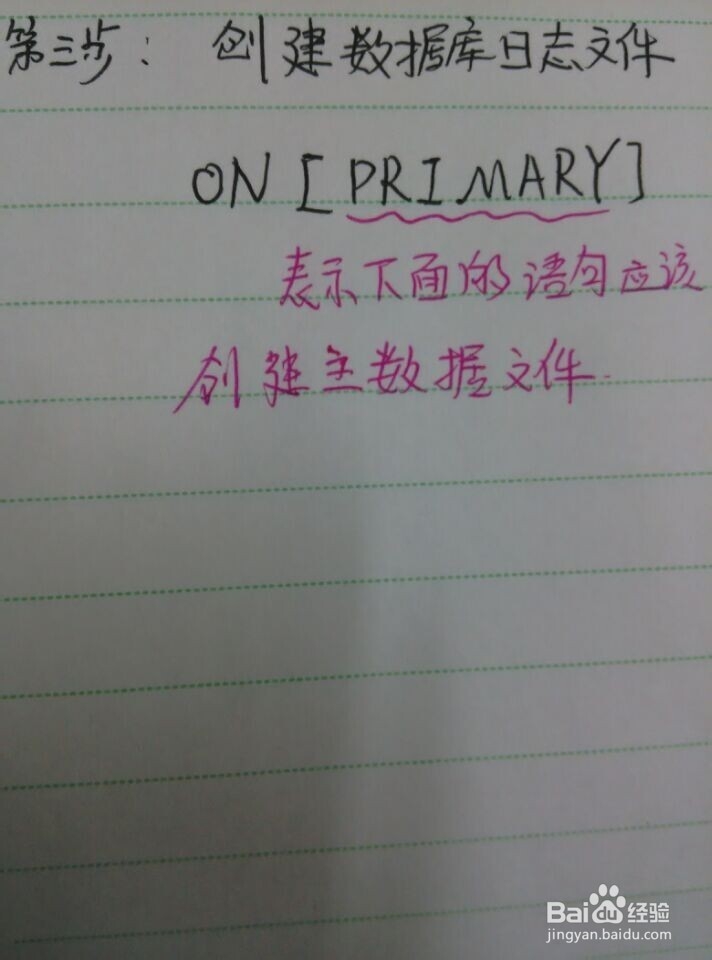 第三步: 创建数据库日志文件
ON [PRIMARY]
表示下面的语句应该
创建主数据文件.
Bai du 经验
jingyan.baidu.com